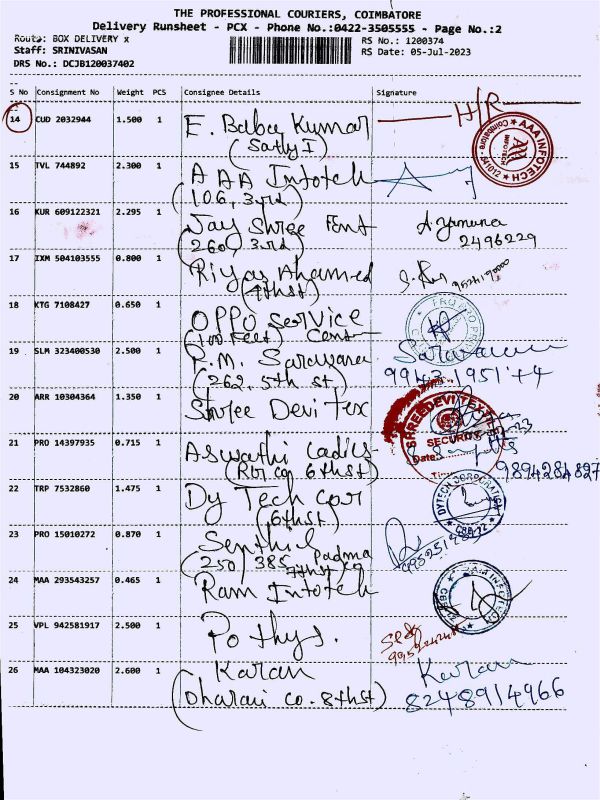 THE PROFESSIONAL COURIERS, COIMBATORE
Delivery Runsheet - PCX - Phone No.:0422-3505555 - Page No.:2
Route: BOX DELIVERY x
RS No.: 1200374
Staff: SRINIVASAN
RS Date: 05-Jul-2023
DRS No.: DCJB120037402
S No Consignment No Weight PCS Consignee Details Signature
14 CUD 2032944 1.500 1 E. Babu Kumar
(Sathy I)
H/R
AAA INFOTECH ★ Coimbatore - 641012 ★
AAA INFOTECH
15 TVL 744892 2.300 1 AAA Infotech
(106, 3rd)
16 KUR 609122321 2.295 1 Jay Shree Font
(260, 3rd)
A. Yamuna
2496229
17 IXM 504103555 0.800 1 Riyas Ahamed
(7thst)
18 KTG 7108427 0.650 1 OPPO Service
(100 Feet) Cent
19 SLM 323400530 2.500 1 P.M. Saravana
(262, 5th st)
Saravanan
20 ARR 10304364 1.350 1 Shree Devi Tex
SHREEDEVI TEXT
SECURITY
Date:
21 PRO 14397935 0.715 1 Aswathi Ladies
6thst)
9894284827
22 TRP 7532860 1.475 1 Dy Tech Cor
(6thst)
DYTECH CORPORATION
★ CBE-12 ★
23 PRO 15010272 0.870 1 Senthil
(250) 385 Padma
24 MAA 293543257 0.465 1 Ram Infotech
RAM INFOTECH
CBE-12
25 VPL 942581917 2.500 1 Pothys.
26 MAA 104323020 2.600 1 Karan
(Dharani Co. 8thst)
Karan
8248914966